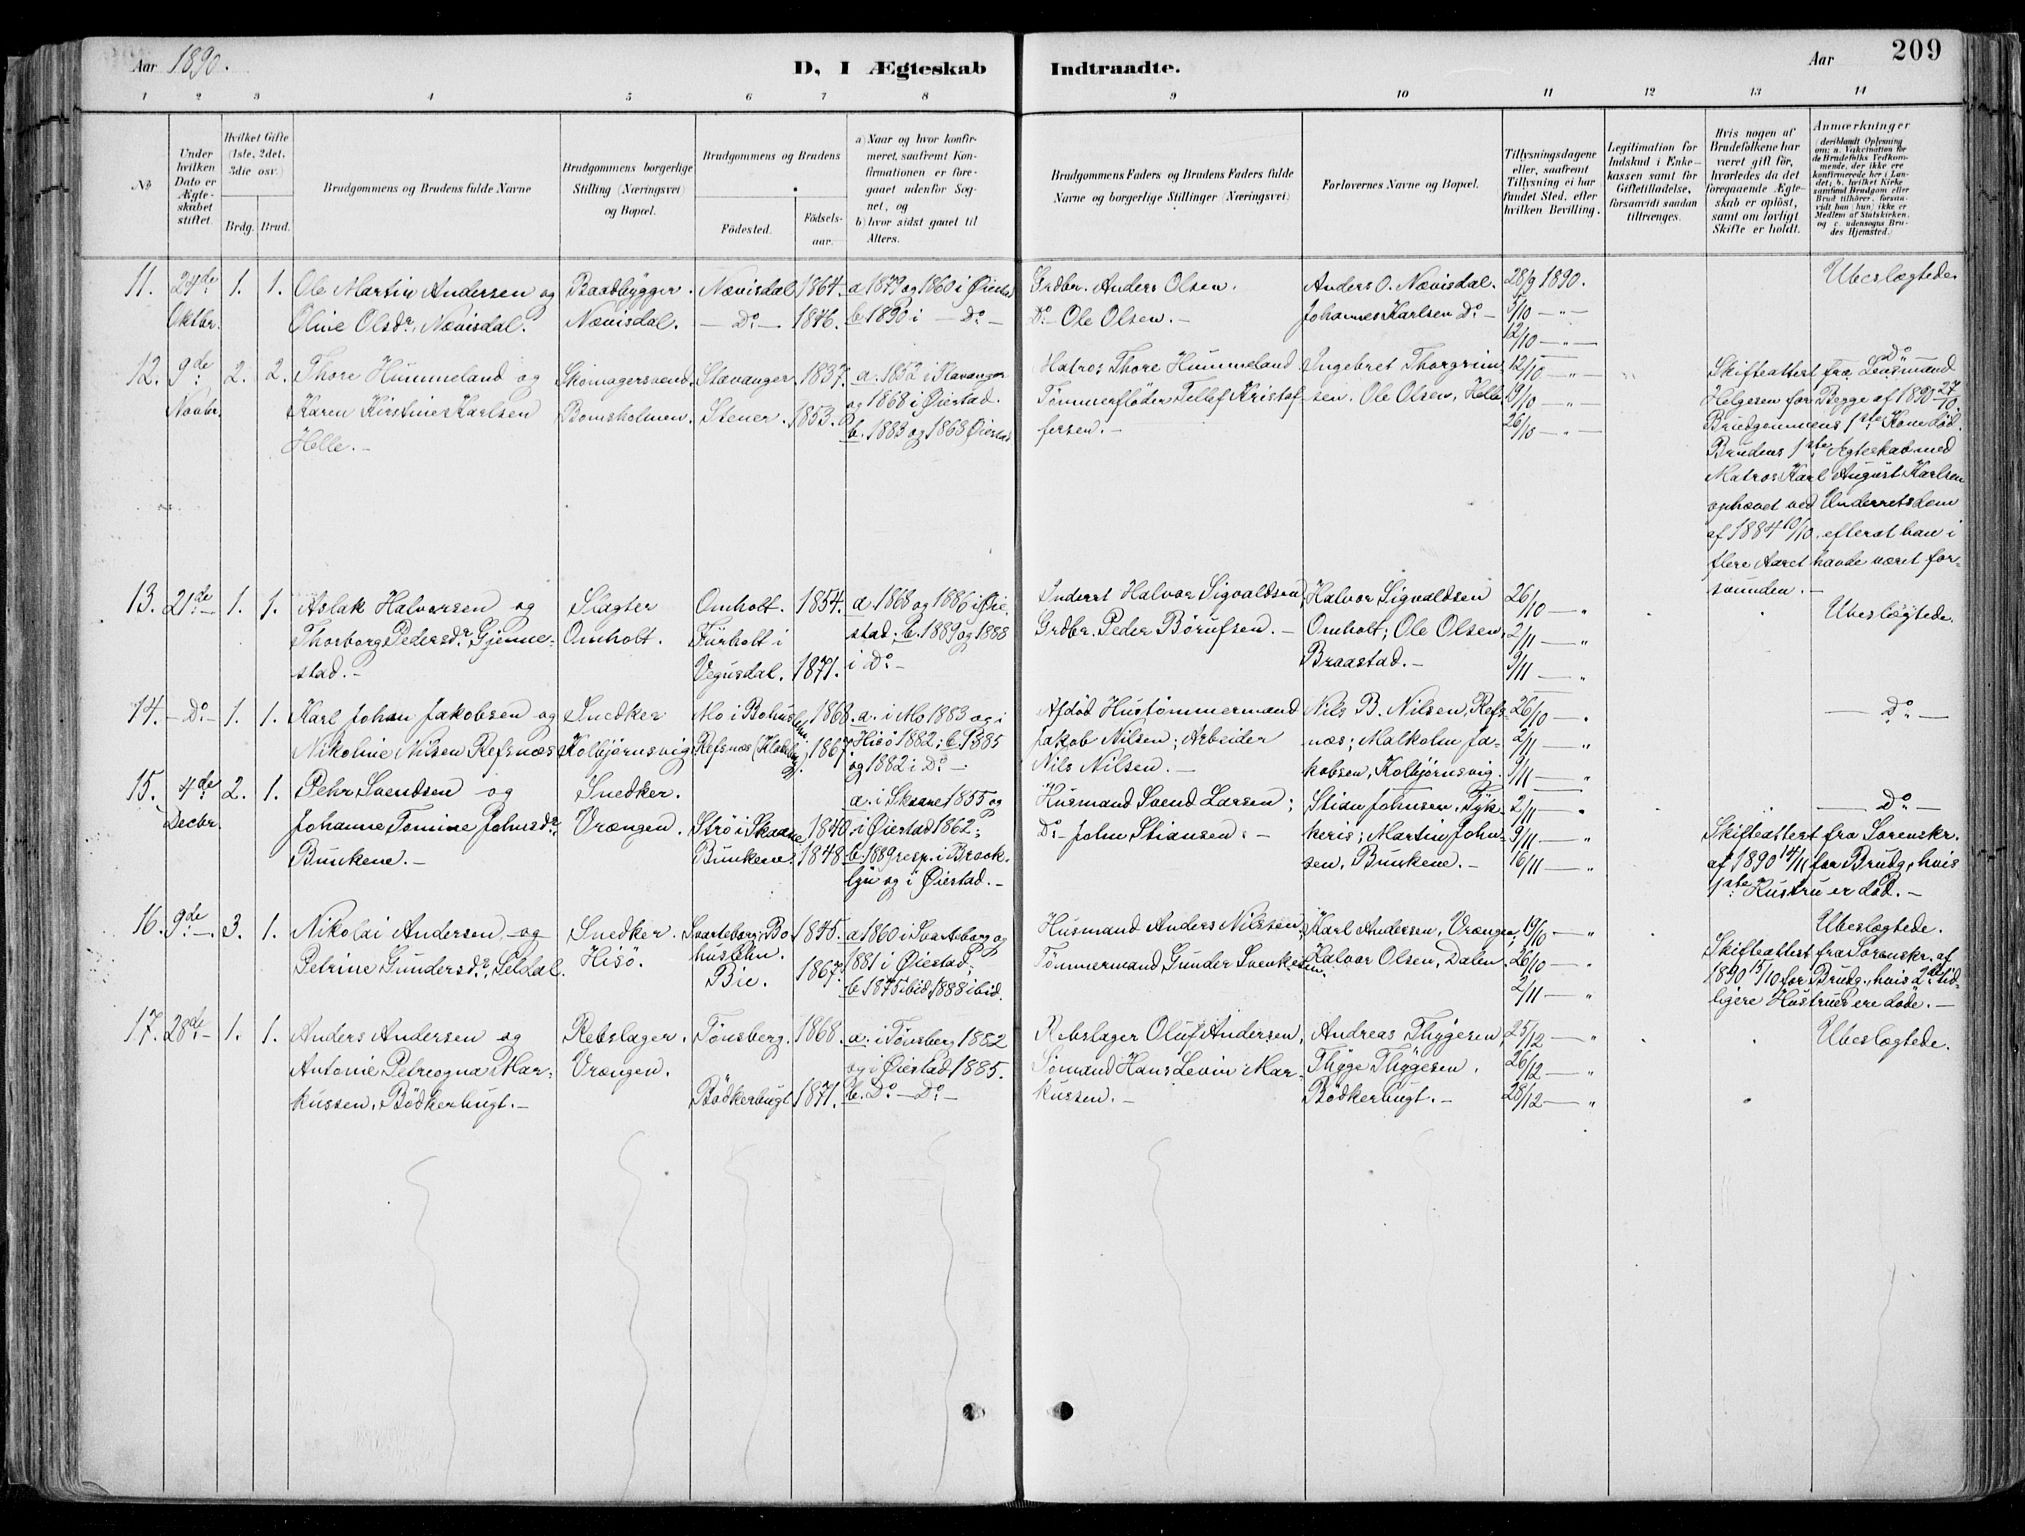 Aar 1890.
D, I Ægteskab Indtraadte.
Aar 209
1 2 3 4 5 6 7 8 9 10 11 12 13 14
№
Under hvilken Dato er Ægteskabet stiftet.
Hvilket Gifte (1ste, 2det, 3die osv.)
Brdg. Brud.
Brudgommens og Brudens fulde Navne
Brudgommens borgerlige Stilling (Næringsvei) og Bopæl.
Brudgommens og Brudens
Fødested. Fødselsaar.
a) Naar og hvor konfirmeret, saafremt Konfirmationen er foregaaet udenfor Sognet, og
b) hvor sidst gaaet til Alters.
Brudgommens Faders og Brudens Faders fulde Navne og borgerlige Stillinger (Næringsvei)
Forlovernes Navne og Bopæl.
Tillysningsdagene eller, saafremt Tillysning ei har fundet Sted, efter hvilken Bevilling.
Legitimation for Indskud i Enkekassen samt for Giftetilladelse, forsaavidt saadan tiltrænges.
Hvis nogen af Brudefolkene har været gift før, hvorledes da det foregaaende Ægteskab er opløst, samt om lovligt Skifte er holdt.
Anmærkninger (deriblandt Oplysning om: a. Vakcination for de Brudefolks Vedkommende, der ikke ere konfirmerede her i Landet; b. hvilket Kirkesamfund Brudgom eller Brud tilhører, forsaavidt han (hun) ikke er Medlem af Statskirken, og c. udensogns Brudes Hjemsted.)
11. 24de Oktbr. 1. 1.
Ole Martin Andersen og
Oline Olsdr. Nævisdal.
Baadbygger.
Nævisdal.
Nævisdal 1864.
— Do — 1846.
a 1879 og 1860 i Øiestad
b. 1890 i — Do —
Grdbr. Anders Olsen.
Do — Ole Olsen. —
Anders O. Nævisdal.
Johannes Karlsen Do —
28/9 1890.
5/10 — „ —
12/10 — „ —
Ubeslægtede.
12. 9de Novbr. 2. 2.
Thore Hummeland og
Karen Kirstine Karlsen
Helle. —
Skomagersvend
Bomsholmen.
Stavanger. 1837.
Stener. 1853.
a. 1852 i Stavanger
og 1868 i Øiestad.
b. 1883 og 1868 Øiestad
Matros Thore Hummeland
Tømmerfløder Tellef Kristof-
fersen. —
Ingebret Thorgrim-
sen. Ole Olsen, Helle
12/10 — „ —
19/10 — „ —
26/10 — „ —
Do
Skifteattest fra Lensmand
Helgesen for Begge af 1890 27/10.
Brudgommens 1ste Kone død.
Brudens 1ste Ægteskab med
Matros Karl August Karlsen
ophævet ved Underretsdom
af 1884 10/10, efterat han i
flere Aaret havde været for-
svunden. —
13. 21de — 1. 1.
Aslak Halvorsen og
Thorborg Pedersdr. Gjenne-
stad. —
Slagter
Omholt.
Omholt. 1854.
Furholt i
Vegusdal. 1871.
a. 1868 og 1886 i Øie-
stad; b. 1889 og 1888
i Do —
Inderst Halvor Sigvaldsen;
Grdbr. Peder Børufsen. —
Halvor Sigvaldsen
Omholt; Ole Olsen,
Braastad. —
26/10 — „
2/11 — „
9/11 — „
Ubeslægtede.
14. — Do — 1. 1.
Karl Johan Jakobsen og
Nikoline Nilsen Refsnæs
Snedker
Kolbjørnsvig
Mo i Bohuslen. 1868.
Refsnæs 1867.
a. i Mo 1883 og i
Hisø 1882; b. 1885
og 1882 i Do —
Afdød Hustømmermand
Jakob Nilsen; Arbeider
Nils Nilsen. —
Nils B. Nilsen, Refs-
næs; Malkolm Ja-
kobsen, Kolbjørnsvig.
26/10 — „
2/11 — „
9/11 — „
— Do —
15. 4de Decbr. 2. 1.
Pehr Svendsen og
Johanne Tomine Johnsdr.
Bunkene. —
Snedker.
Vrængen.
Strø i Skaane 1840.
Bunkene. 1848.
a. i Skaane 1855 og
i Øiestad 1862;
b. 1889 resp. i Braak-
lyn og i Øiestad. —
Husmand Svend Larsen;
Do — John Stiansen. —
Stian Johnsen, Tyk-
keris; Martin John-
sen, Bunkene. —
2/11 — „
9/11 — „
16/11 — „
— Do —
Skifteattest fra Sorenskr.
af 1890 14/11 for Brudg., hvis
1ste Hustru er død. —
16. 9de —. 3. 1.
Nikolai Andersen og
Petrine Gundersdr., Seldal.
Snedker.
Hisø.
Svarteborg, Bo- 1845.
huslehn.
Bie. 1867.
a 1860 i Svarteborg og
1881 i Øiestad;
b. 1875 ibid 1888 ibid.
Husmand Anders Nilssen;
Tømmermand Gunder Svenkesen.
Karl Andersen, Vrængen;
Halvor Olsen, Dalen
19/10 — „
26/10 — „
2/11 — „
Ubeslægtede.
Skifteattest fra Sorenskr. af
1890 15/10 for Brudg., hvis 2de tid-
ligere Hustruer ere døde. —
17. 28de — 1. 1.
Anders Andersen og
Antonie Petreogna Mar-
kussen, Bödkerbugt. —
Rebslager.
Vrængen.
Tönsberg. 1868.
Bödkerbugt 1871.
a. i Tönsberg 1882
og i Øiestad 1885.
b. Do — Do —
Rebslager Oluf Andersen,
Sömand Hans Levin Mar-
kussen. —
Andreas Thygesen,
Thyge Thygesen,
Bödkerbugt. —
25/12 — „
26/12 — „
28/12 — „
Ubeslægtede.